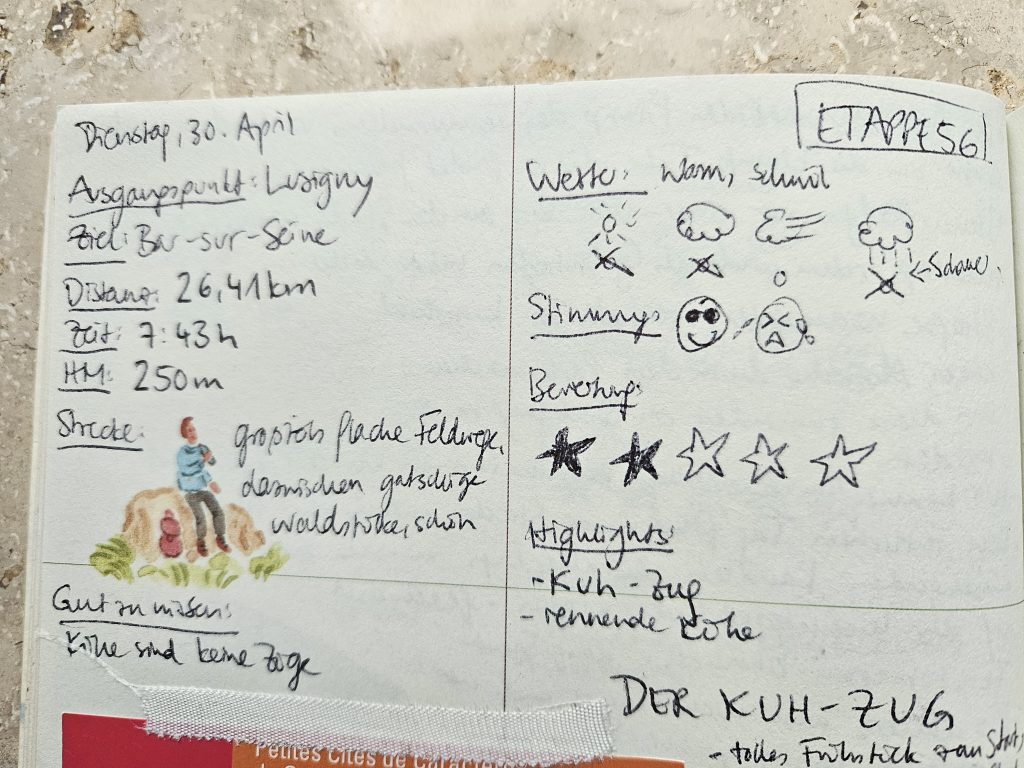 Dienstag, 30. April
Ausgangspunkt: Lusigny
Ziel: Bar-sur-Seine
Distanz: 26,41km
Zeit: 7:43h
HM: 250m
Strecke:
großteils flache Feldwege,
dazwischen gatschige
Waldstücke, schön
Gut zu wissen:
Kühe sind keine Züge
ETAPPE 56
Wetter: warm, schwül
← Schauer.
Stimmung:
Bewertung:
Highlights:
- Kuh-Zug
- rennende Kühe
DER KUH-ZUG
- tolles Frühstück zum Start,
Petites Cités de Caractère